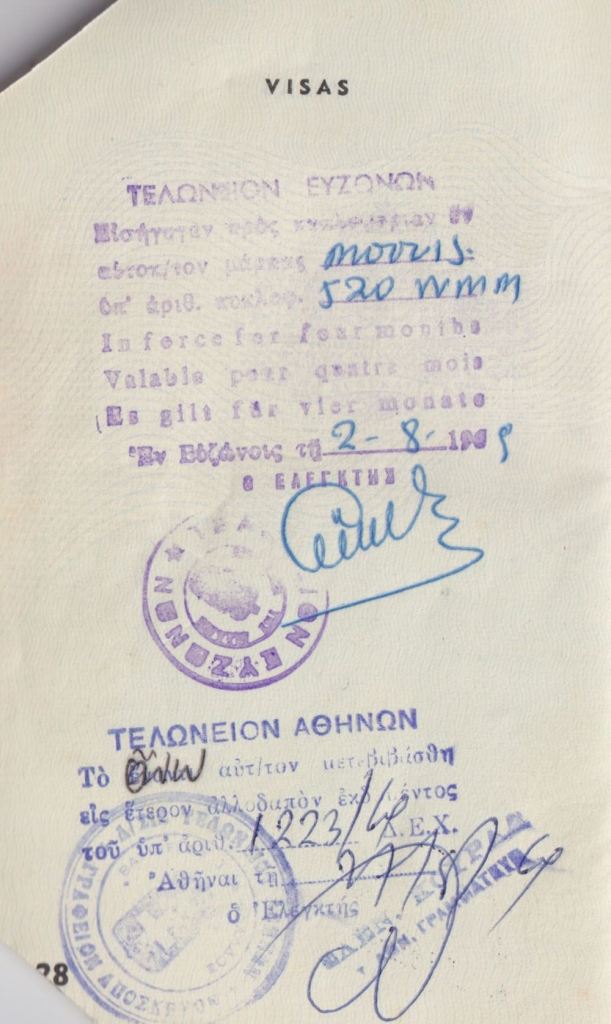 VISAS
ΤΕΛΩΝΕΙΟΝ ΕΥΖΩΝΩΝ
Εἰσήγαγεν πρὸς κυκλοφορίαν ἓν
αὐτοκ/τον μάρκας Morris.
ὑπ' ἀριθ. κυκλοφ. 520 WMM
In force for four months
Valable pour quatre mois
Es gilt für vier monate
Ἐν Εὐζώνοις τῇ 2-8-196
Ο ΕΛΕΓΚΤΗΣ
ΤΕΛΩΝΕΙΟΝ ΕΥΖΩΝΩΝ
ΤΕΛΩΝΕΙΟΝ ΑΘΗΝΩΝ
Τὸ αὐτ/τον μετεβιβάσθη
εἰς ἕτερον ἀλλοδαπὸν ἐκδοθέντος
τοῦ ὑπ' ἀριθ. 1223/ Δ.Ε.Χ.
Ἀθῆναι τῇ
ὁ Ἐλεγκτής
28